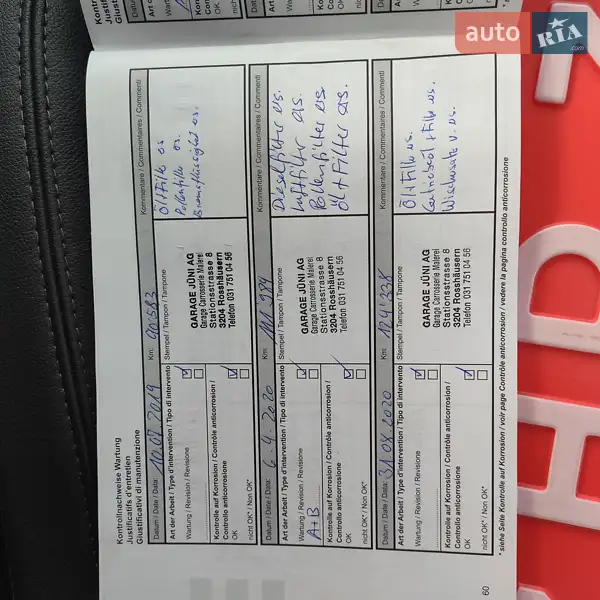 auto RIA.com
Kontrollnachweise Wartung
Justificatifs d'entretien
Giustificativi di manutenzione
Datum / Date / Data: 10.07.2019 Km:
Art der Arbeit / Type d'intervention / Tipo di intervento
Stempel / Tampon / Tampone
Kommentare / Commentaires / Commenti
Wartung / Revision / Revisione
Kontrolle auf Korrosion / Contrôle anticorrosion /
Controllo anticorrosione
OK
nicht OK* / Non OK*
GARAGE JÜNI AG
Garage Carrosserie Malerei
Stationsstrasse 8
3204 Rosshäusern
Telefon 031 751 04 56
Öl+Filter os
Pollenfilter os.
Bremsflüssigkeit os.
Datum / Date / Data: 6.4.2020 Km: 111'984
Art der Arbeit / Type d'intervention / Tipo di intervento
Stempel / Tampon / Tampone
Kommentare / Commentaires / Commenti
Wartung / Revision / Revisione
A+B
Kontrolle auf Korrosion / Contrôle anticorrosion /
Controllo anticorrosione
OK
nicht OK* / Non OK*
GARAGE JÜNI AG
Garage Carrosserie Malerei
Stationsstrasse 8
3204 Rosshäusern
Telefon 031 751 04 56
Dieselfilter os.
Luftfilter os.
Pollenfilter os
Öl+Filter os.
Datum / Date / Data: 31.08.2020 Km: 124'338
Art der Arbeit / Type d'intervention / Tipo di intervento
Stempel / Tampon / Tampone
Kommentare / Commentaires / Commenti
Wartung / Revision / Revisione
Kontrolle auf Korrosion / Contrôle anticorrosion /
Controllo anticorrosione
OK
nicht OK* / Non OK*
GARAGE JÜNI AG
Garage Carrosserie Malerei
Stationsstrasse 8
3204 Rosshäusern
Telefon 031 751 04 56
Öl Filter os.
Getriebeöl + Filter os.
* siehe Seite Kontrolle auf Korrosion / voir page Contrôle anticorrosion / vedere la pagina controllo anticorrosione
60